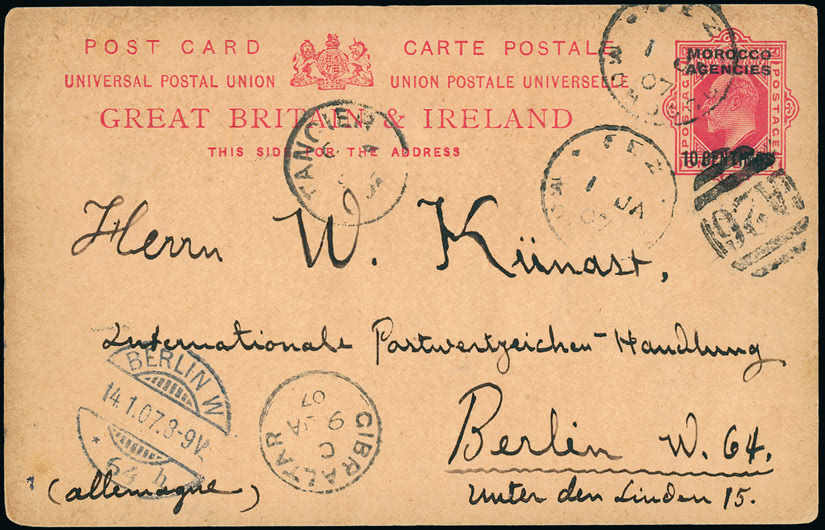 POST CARD CARTE POSTALE
UNIVERSAL POSTAL UNION UNION POSTALE UNIVERSELLE
GREAT BRITAIN & IRELAND
THIS SIDE FOR THE ADDRESS
POSTAGE
MOROCCO
AGENCIES
10 CENTIMOS
FEZ
1
07
TANGIER
FEZ
1
JA
07
A26
Herrn W. Künast,
Internationale Postwertzeichen-Handlung
Berlin W. 64.
Unter den Linden 15.
(allemagne)
BERLIN W
14.1.07.8-9V.
* 64 h
GIBRALTAR
C
9 JA
07